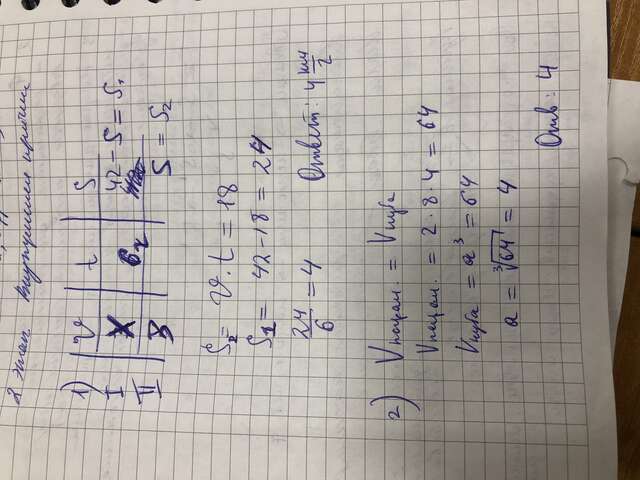 2 этап Внутришкол
1) V t S
I X 6ч 42 - S = S₁
II 3 S = S₂
S₂ = V · t = 18
S₁ = 42 - 18 = 24
24/6 = 4 Ответ: 4 км/ч
2) Vпарал. = Vкуба
Vпарал. = 2 · 8 · 4 = 64
Vкуба = a³ = 64
a = ³√64 = 4
Отв: 4